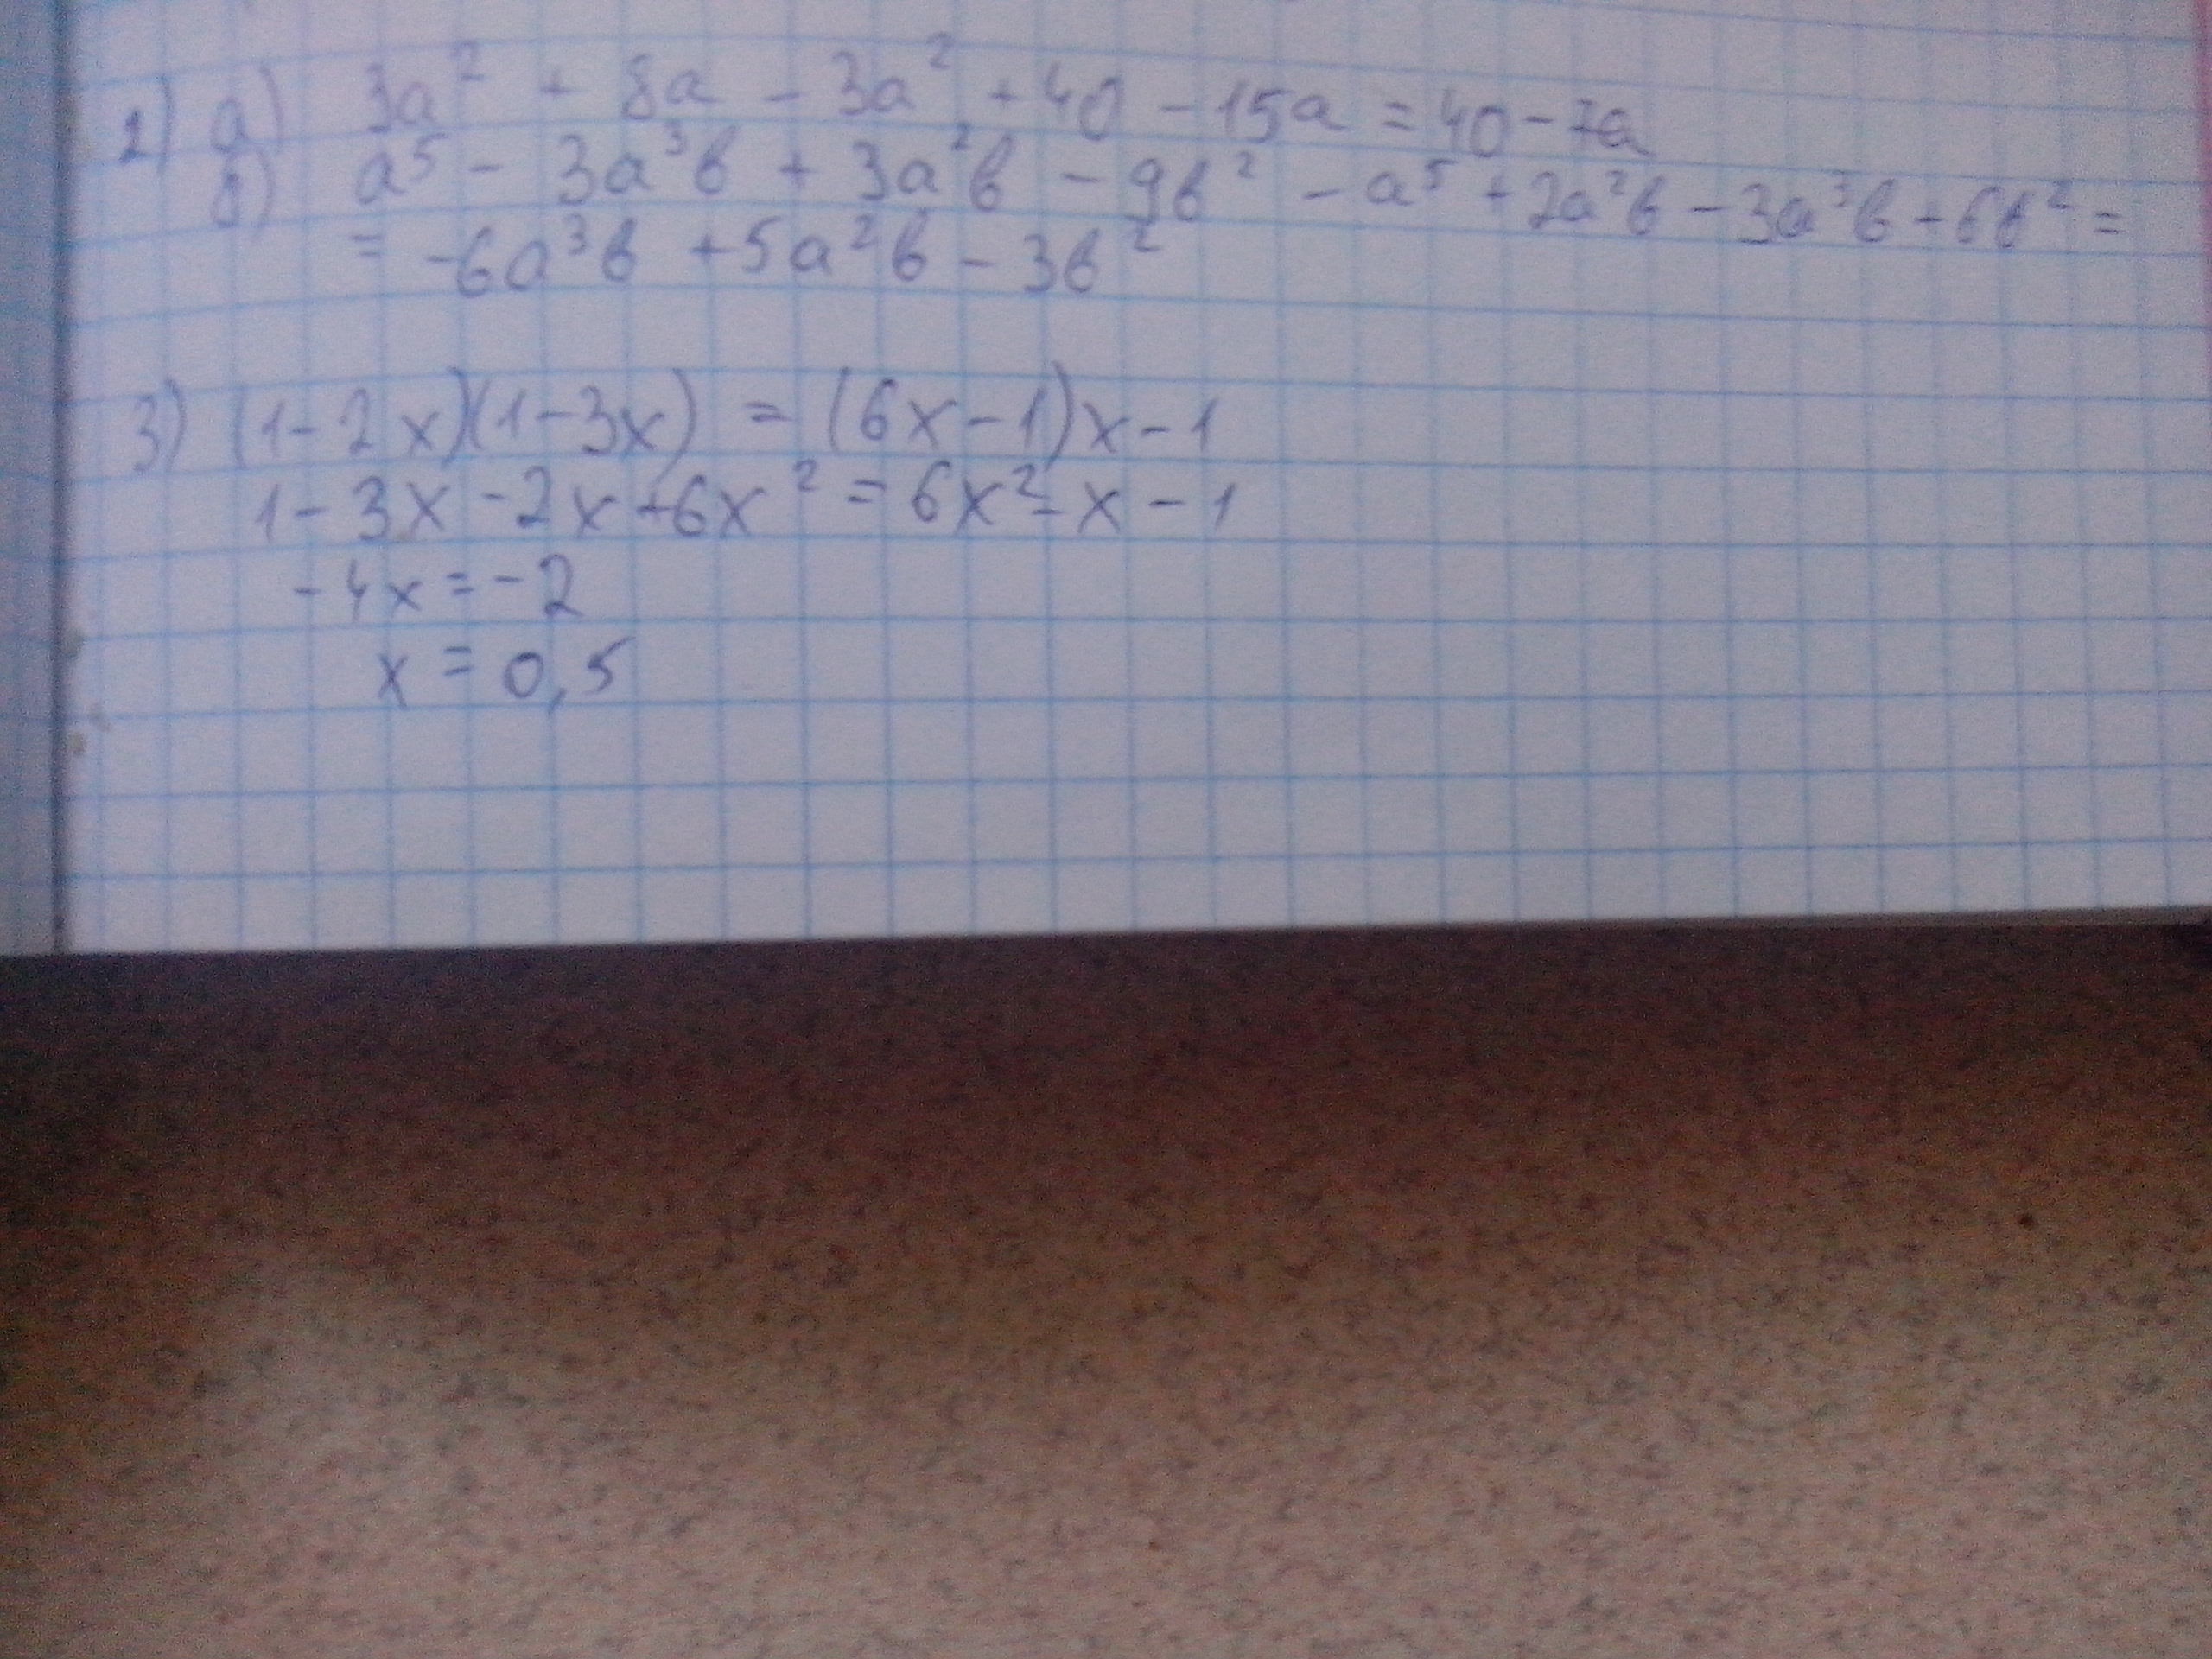 2) а) 3a² + 8a - 3a² + 40 - 15a = 40 - 7a
б) a⁵ - 3a³b + 3a²b - 9b² - a⁵ + 2a²b - 3a³b + 6b² =
= -6a³b + 5a²b - 3b²
3) (1-2x)(1-3x) = (6x-1)x-1
1-3x-2x+6x² = 6x²-x-1
-4x = -2
x = 0,5